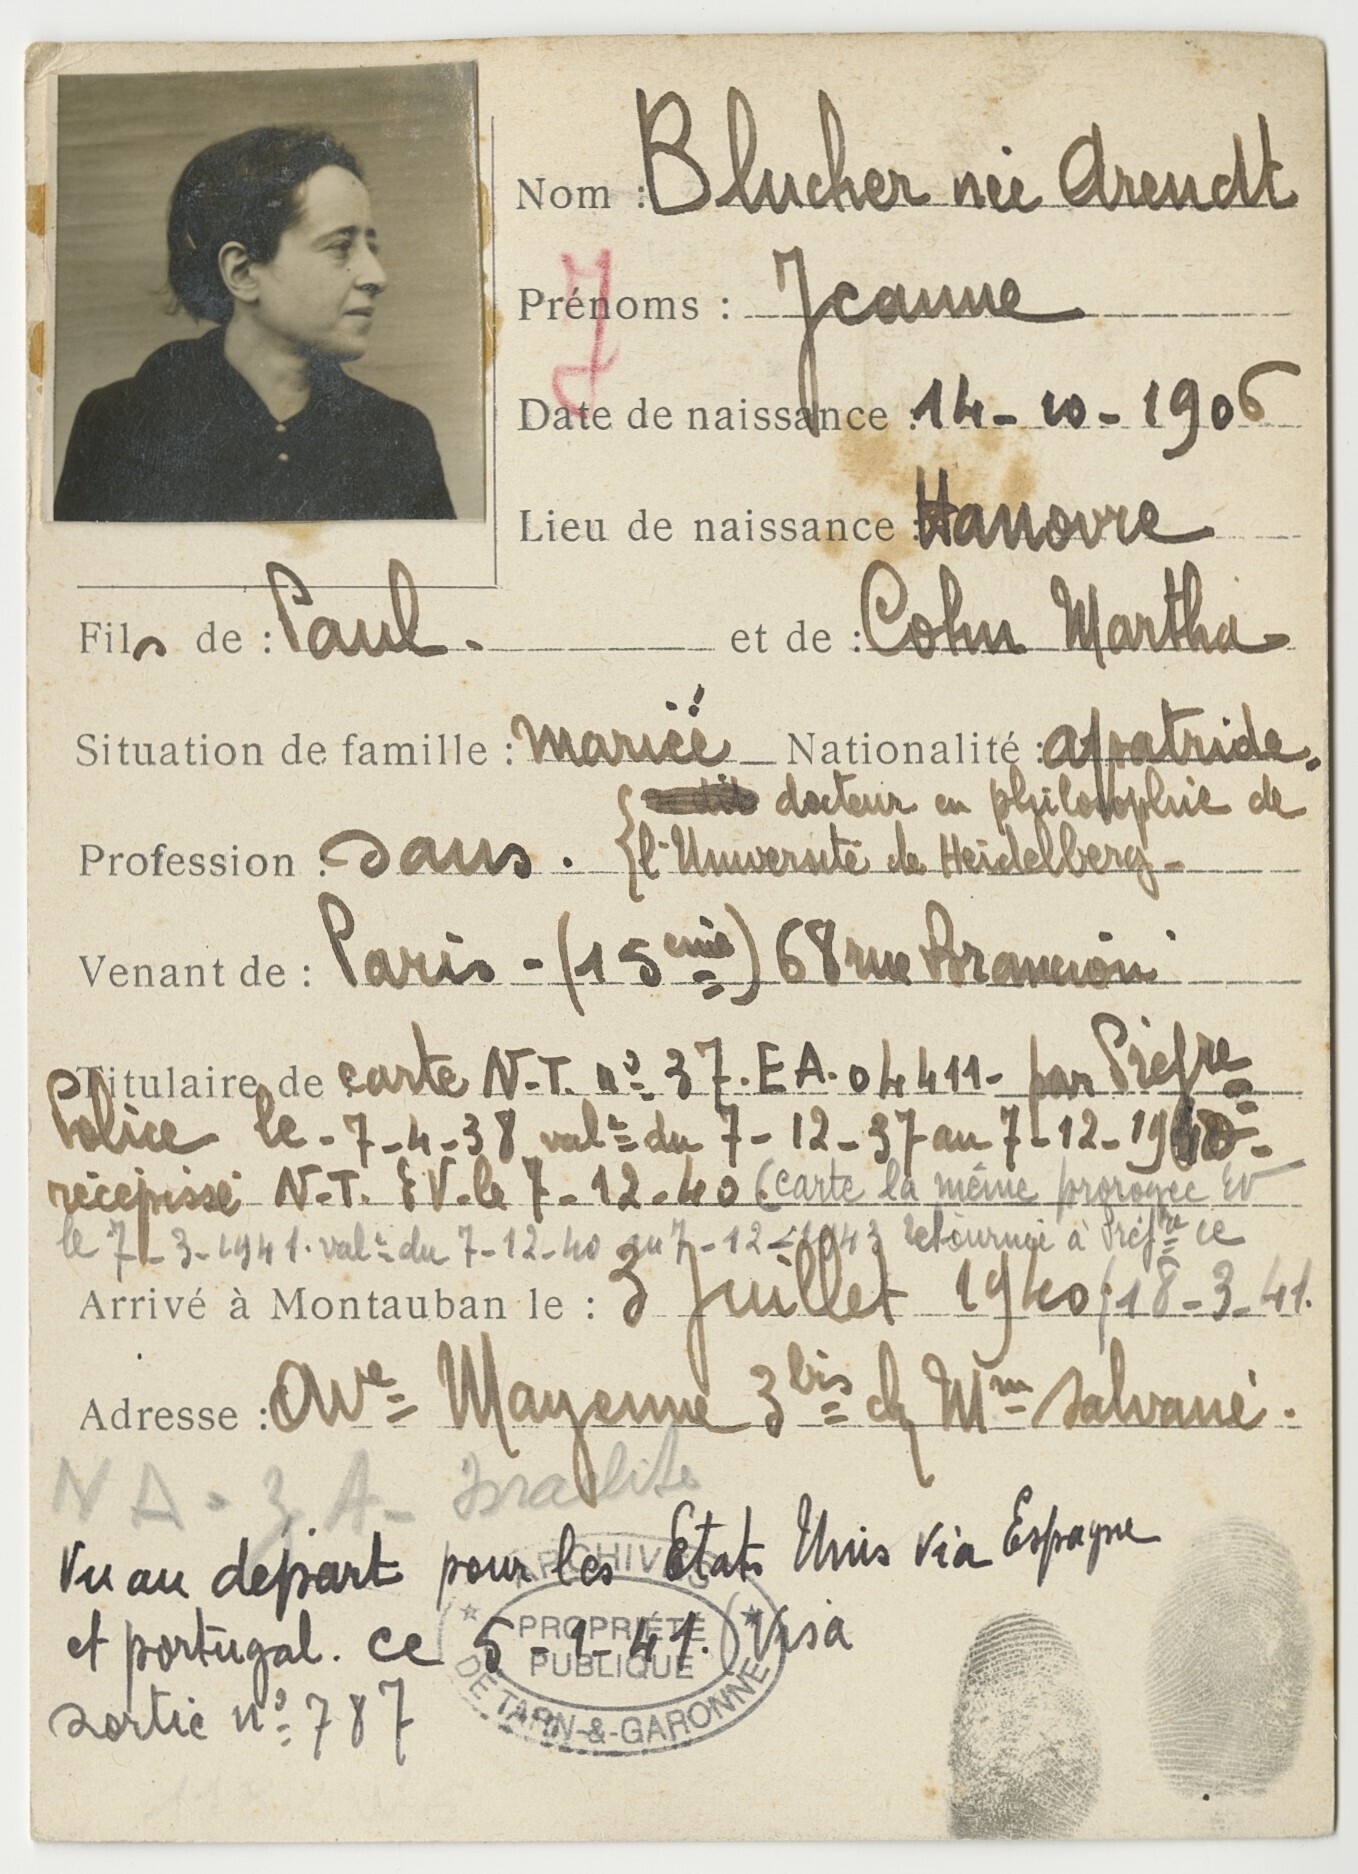 Nom : Blucher née Arendt
J
Prénoms : Jeanne
Date de naissance : 14-10-1906
Lieu de naissance : Hanovre
Fils de : Paul. et de : Cohn Martha
Situation de famille : mariée Nationalité : apatride.
docteur en philosophie de
Profession : sans. l'Université de Heidelberg-
Venant de : Paris - (15eme) 68 rue Brancion
Titulaire de carte N.T. no 37.EA.04411- par Préfre
Police le - 7-4-38 val= du 7-12-37 au 7-12-1940-
récépissé N.T. EV. le 7-12-40 (carte la même prorogée EV
le 7-3-1941. val= du 7-12-40 au 7-12-1943 retournée à Préfre ce
Arrivé à Montauban le : 3 Juillet 1940 (18-3-41.
Adresse : Ave Mayenne 3 bis ch Mme
N A - 3 A - Israélite
Vu au départ pour les Etats Unis via Espagne
et portugal. ce 5-1-41. Visa
sortie no 787
ARCHIVES
PROPRIÉTÉ
PUBLIQUE
DE TARN-&-GARONNE